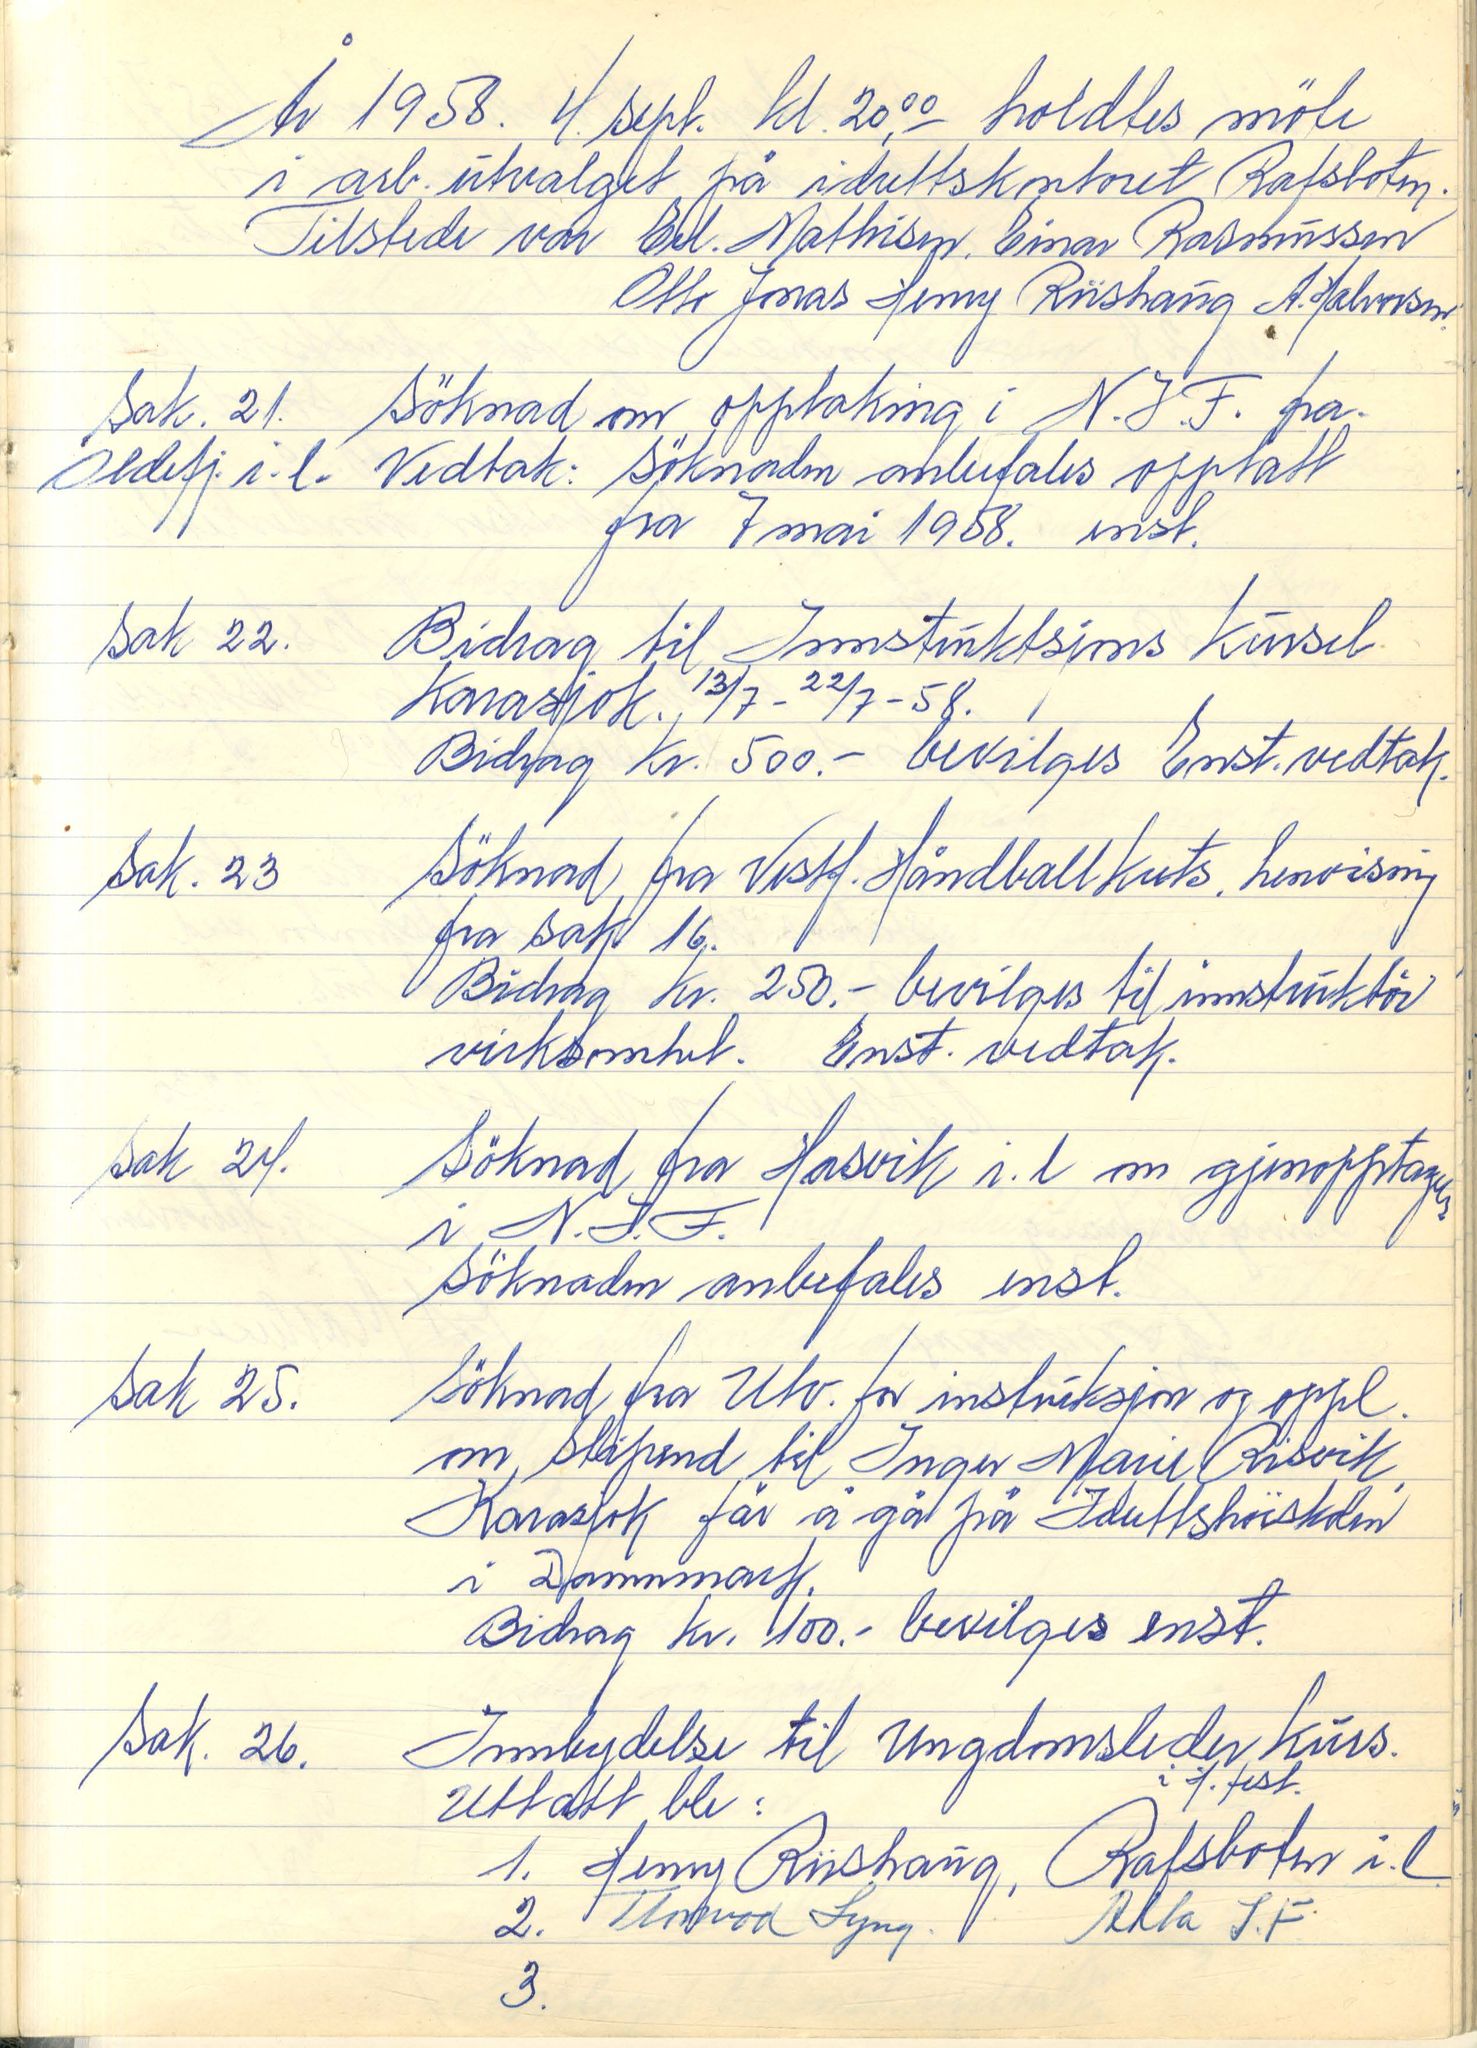 År 1958. 4. sept. kl. 20,00 holdtes möte
i arb. utvalget på idrettskontoret Rafsboten.
Tilstede var Erl. Mathisen, Einar Rasmussen
Otto Jonas Henry Riishaug A. Halvorsen.
Sak. 21. Söknad om opptaking i N.I.F. fra.
i.l. Vedtak: Söknaden anbefales opptatt
fra 7 mai 1958. enst.
Sak 22. Bidrag til Innstruktsjons Kursel
Karasjok. 13/7 - 22/7 - 58.
Bidrag kr. 500.- bevilges Enst. vedtak.
Sak. 23 Söknad fra Vestf. Håndballkrets, henvisning
fra sak 16.
Bidrag kr. 250.- bevilges til innstruktör
virksomhet. Enst. vedtak.
Sak 24. Söknad fra Hasvik i.l om gjenopptagelse
i N.I.F.
Söknaden anbefales enst.
Sak 25. Söknad fra Utv. for instruksjon og oppl.
om stipend til Inger Marie Risvik,
Karasjok får å gå på Idrettshöiskolen
i Dannmark.
Bidrag kr. 100.- bevilges enst.
Sak. 26. Innbydelse til Ungdomsleder kurs.
i H. fest.
Uttatt ble:
1. Henry Riishaug, Rafsboten i.l
2. Thorvod Lyng. Alta I.F.
3.